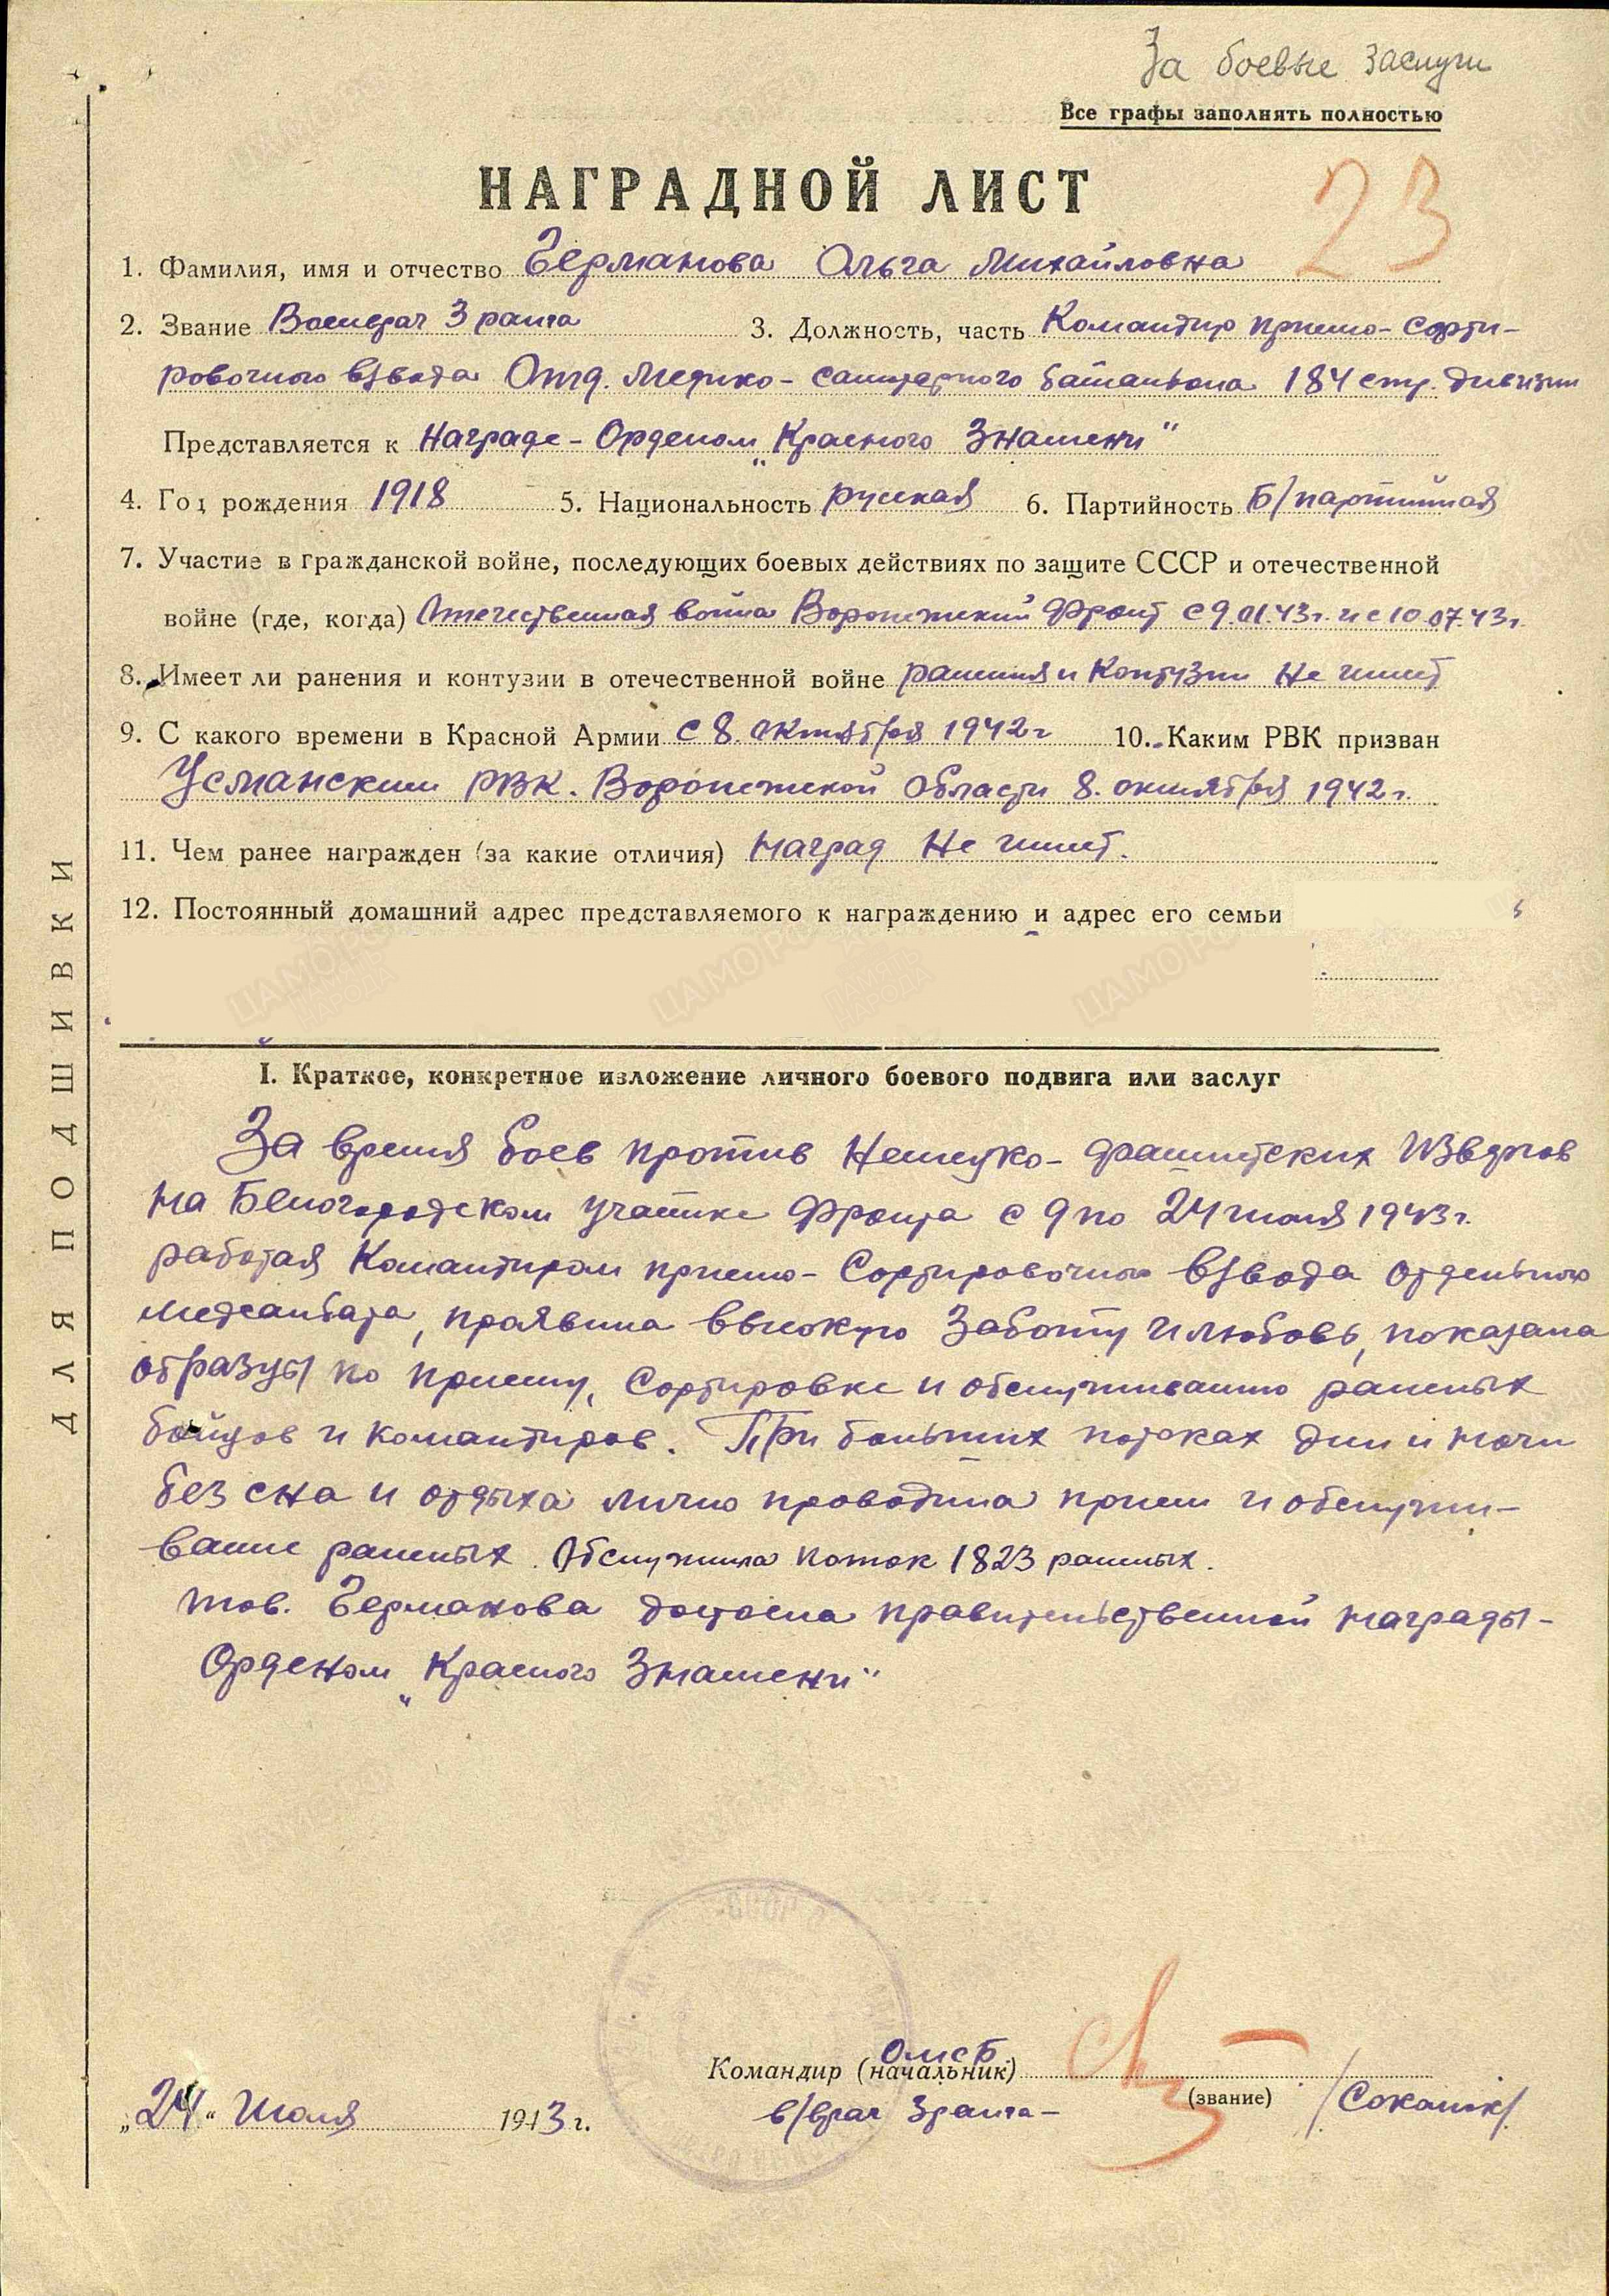 За боевые заслуги
Все графы заполнять полностью
НАГРАДНОЙ ЛИСТ
23
1. Фамилия, имя и отчество Германова Ольга Михайловна
2. Звание Военврач 3 ранга 3. Должность, часть Командир приемо-сорти-
ровочного взвода Отд. Медико-санитарного батальона 184 стр. дивизии
Представляется к Награде - Орденом „Красного Знамени"
4. Год рождения 1918 5. Национальность русская 6. Партийность Б/партийная
7. Участие в гражданской войне, последующих боевых действиях по защите СССР и отечественной
войне (где, когда) Отечественная война Воронежский фронт с 9.01.43г. и с 10.07.43г.
8. Имеет ли ранения и контузии в отечественной войне ранения и контузии не имеет
9. С какого времени в Красной Армии с 8. октября 1942г 10. Каким РВК призван
Усманским РВК. Воронежской области 8. октября 1942г.
11. Чем ранее награжден (за какие отличия) Наград не имеет.
12. Постоянный домашний адрес представляемого к награждению и адрес его семьи
I. Краткое, конкретное изложение личного боевого подвига или заслуг
За время боев против Немецко-фашистских извергов
на Белгородском участке фронта с 9 по 24 июля 1943г.
работая Командиром приемо-Сортировочного взвода отдельного
медсанбата, проявила ввысокую заботу и любовь, показала
образцы по приему, Сортировке и обслуживанию раненых
бойцов и командиров. При больших потоках дни и ночи
без сна и отдыха лично проводила прием и обслужи-
вание раненых. Обслужила поток 1823 раненых.
тов. Германова достойна правительственной награды -
Орденом „Красного Знамени"
ОМСБ
Командир (начальник)
(звание)
в/врач 3 ранга - /Соканик/
„24" Июля 1943 г.
ДЛЯ ПОДШИВКИ
ЦАМО РФ
ПАМЯТЬ НАРОДА